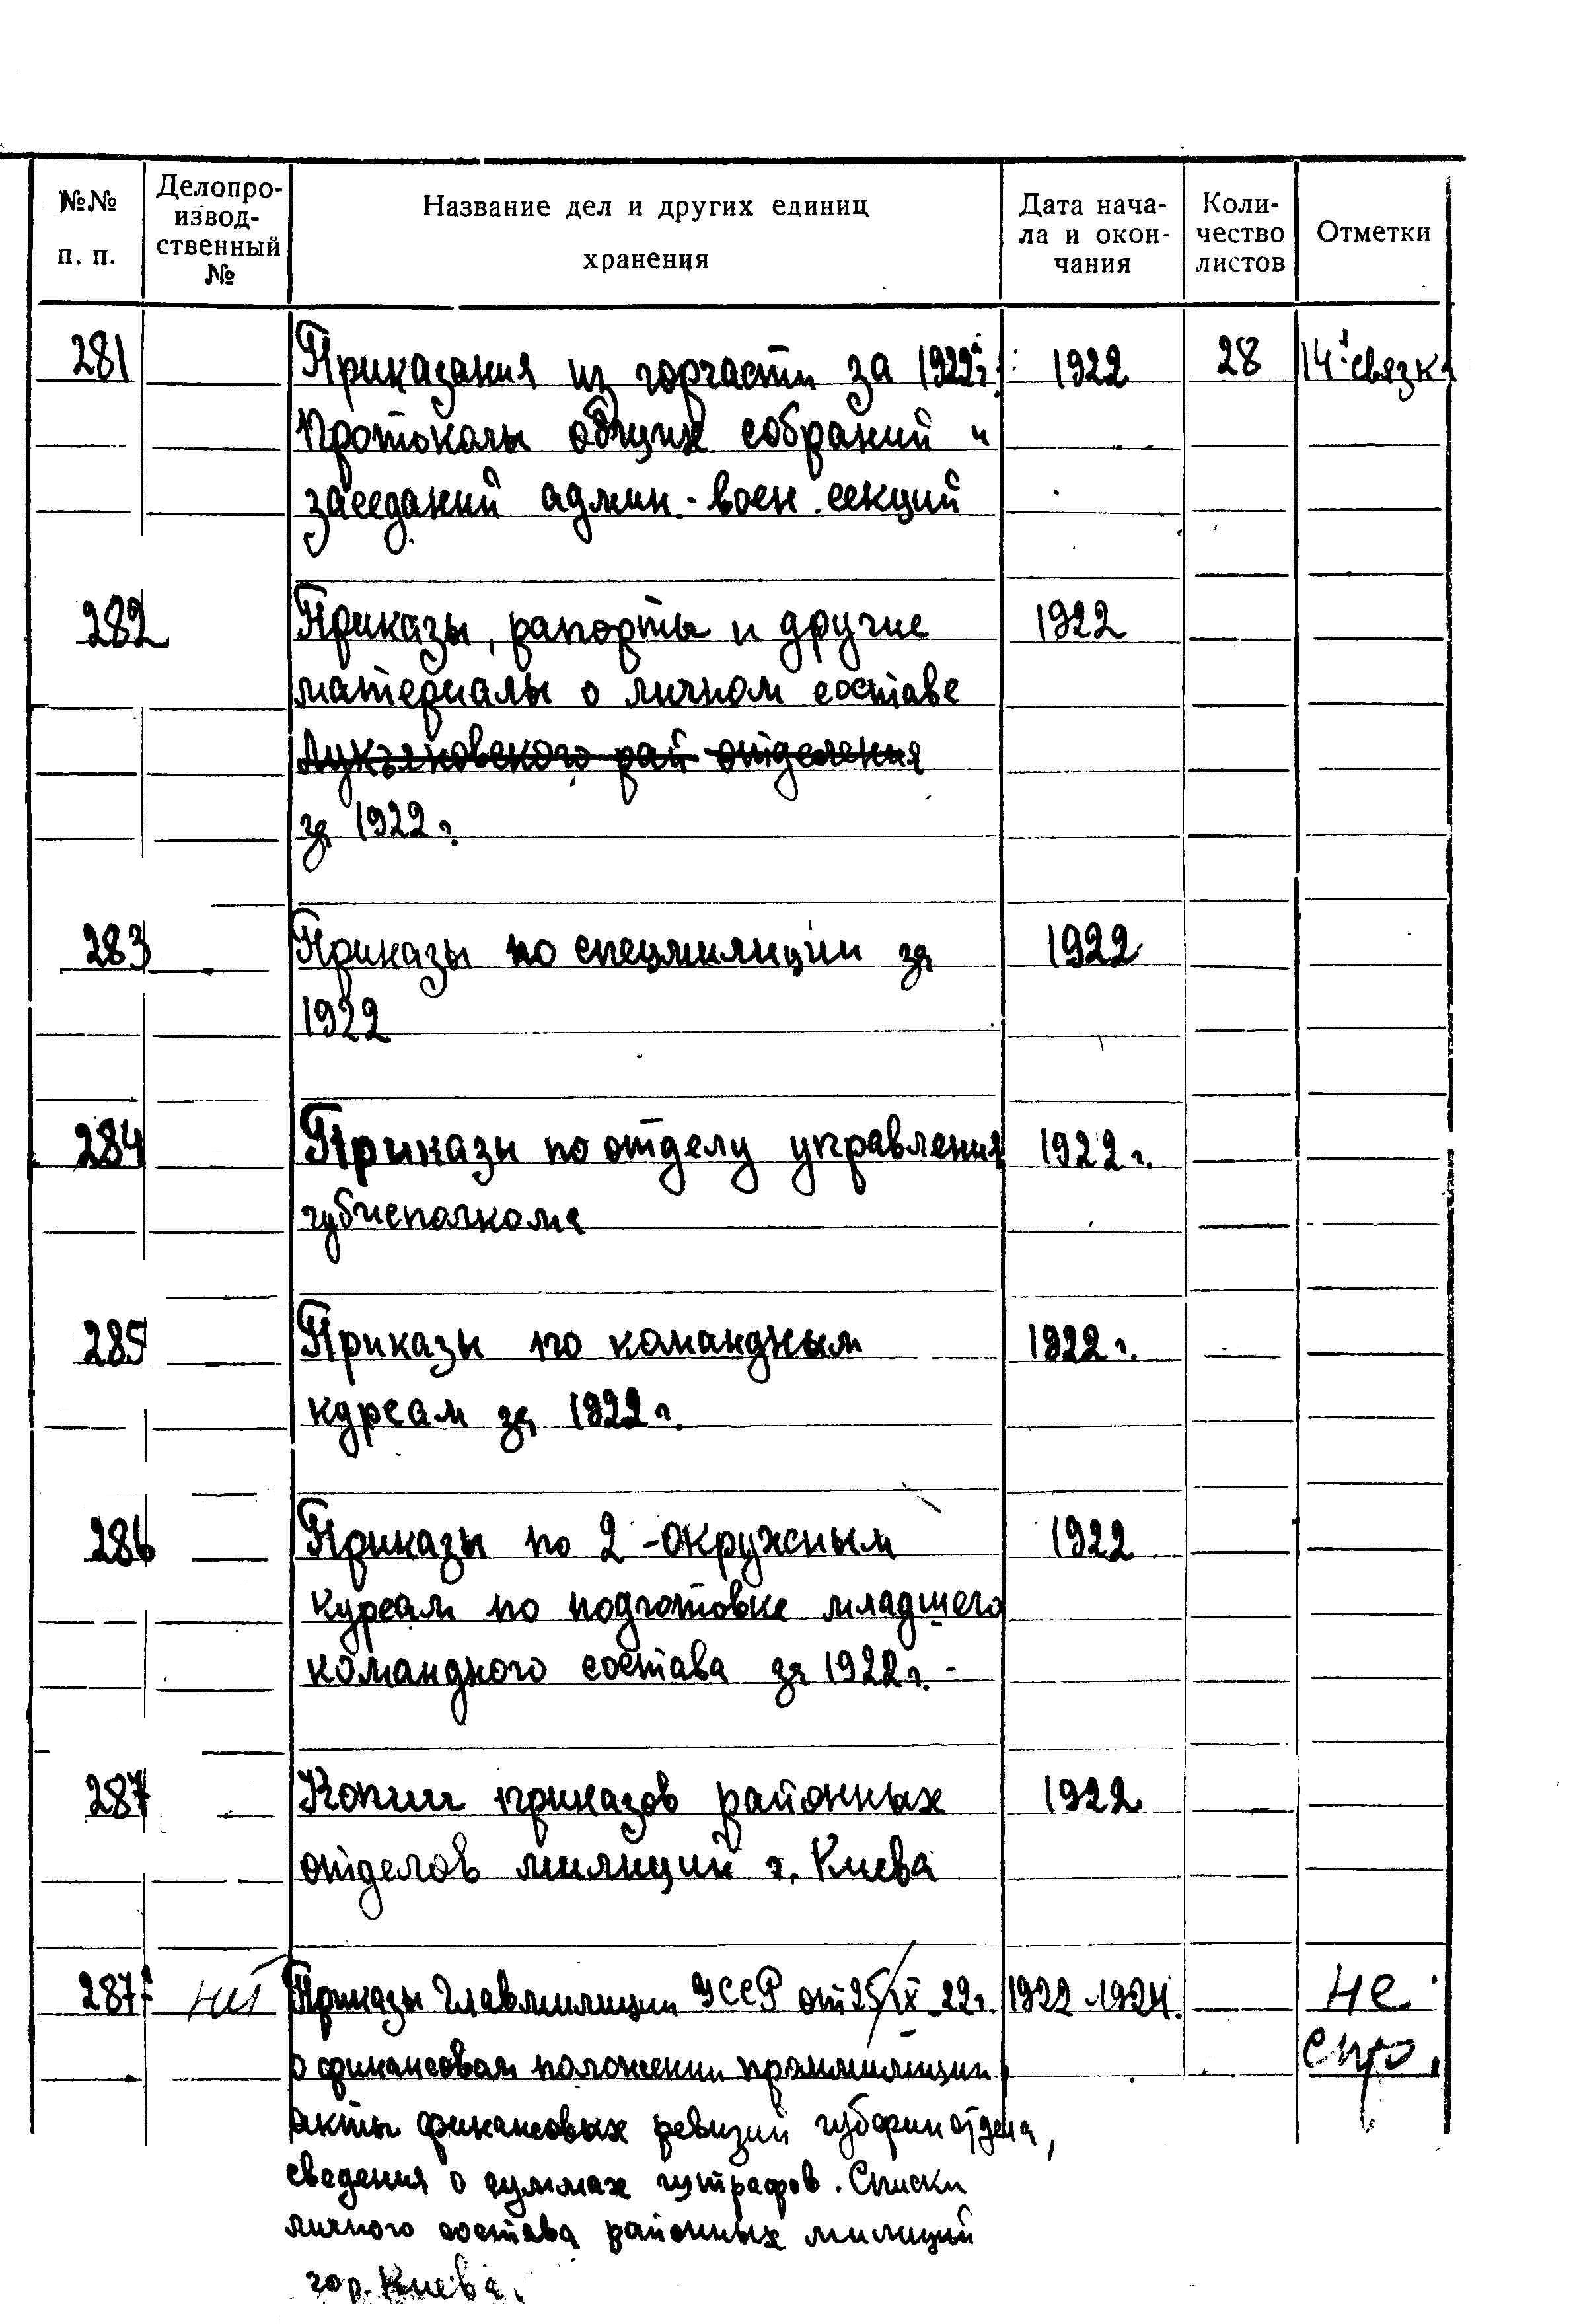 №№ п. п.
Делопро-
извод-
ственный
№
Название дел и других единиц
хранения
Дата нача-
ла и окон-
чания
Коли-
чество
листов
Отметки
281 Приказания из горчасти за 1922 г. 1922 28 14 связка
Протоколы общих собраний и
заседаний админ.-воен. секций
282 Приказы, рапорты и другие 1922
материалы о личном составе
Лукьяновского рай отделения
за 1922 г.
283 Приказы по спецмилиции за 1922
1922
284 Приказы по отделу управления 1922 г.
губисполкома
285 Приказы по командным 1922 г.
курсам за 1922 г.
286 Приказы по 2-окружным 1922
курсам по подготовке младшего
командного состава за 1922 г.
287 Копии приказов районных 1922
отделов милиции г. Киева
287 Приказы Главмилиции УССР от 25/IX-22 г. 1922-1924. не
о финансовом положении промилиции. спр.
Акты финансовых ревизий губфинотдела,
сведения о суммах штрафов. Списки
личного состава районных милиций
гор. Киева.